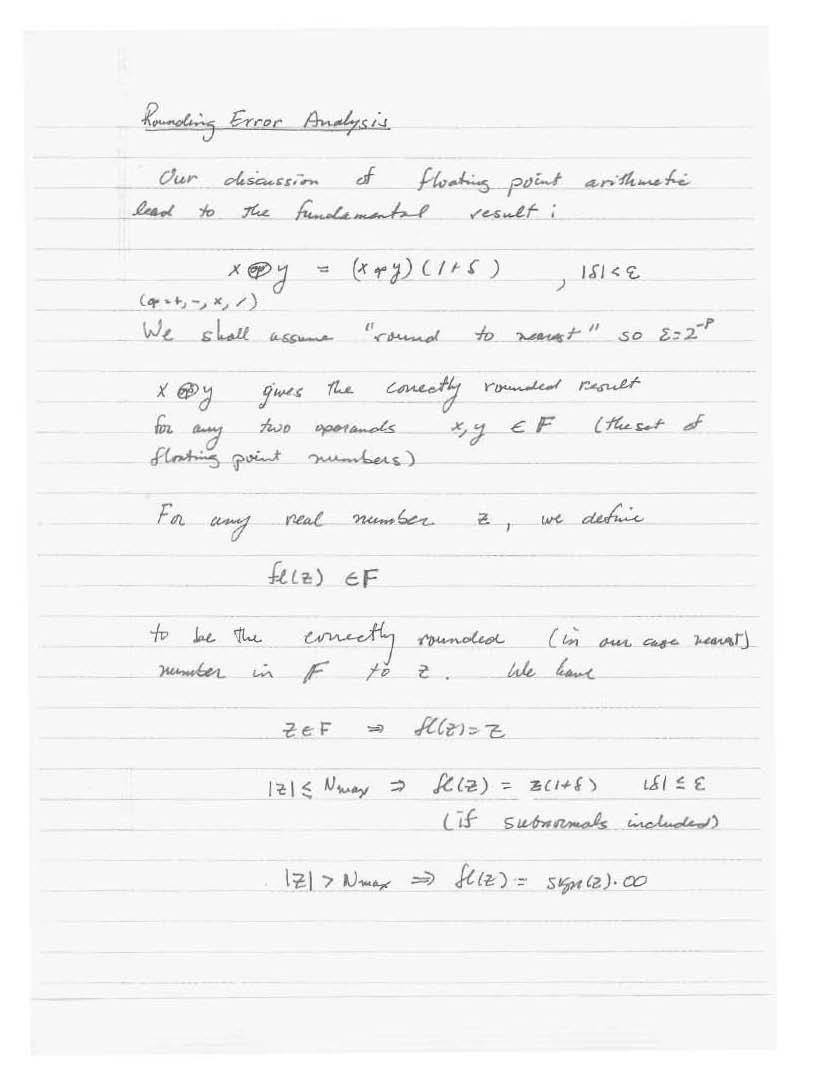 Rounding Error Analysis
Our discussion of floating point arithmetic
lead to the fundamental result :
x ⊚p y = (x op y) (1+δ) , |δ|<ε
(op = +, -, x, /)
We shall assume "round to nearest" so ε=2^-p
x ⊚p y gives the correctly rounded result
for any two operands x, y ∈ F (the set of
floating point numbers)
For any real number z, we define
fl(z) ∈ F
to be the correctly rounded (in our case nearest)
number in F to z. We have
z ∈ F ⇒ fl(z) = z
|z| ≤ Nmax ⇒ fl(z) = z(1+δ) |δ| ≤ ε
(if subnormals included)
|z| > Nmax ⇒ fl(z) = sign(z)·∞